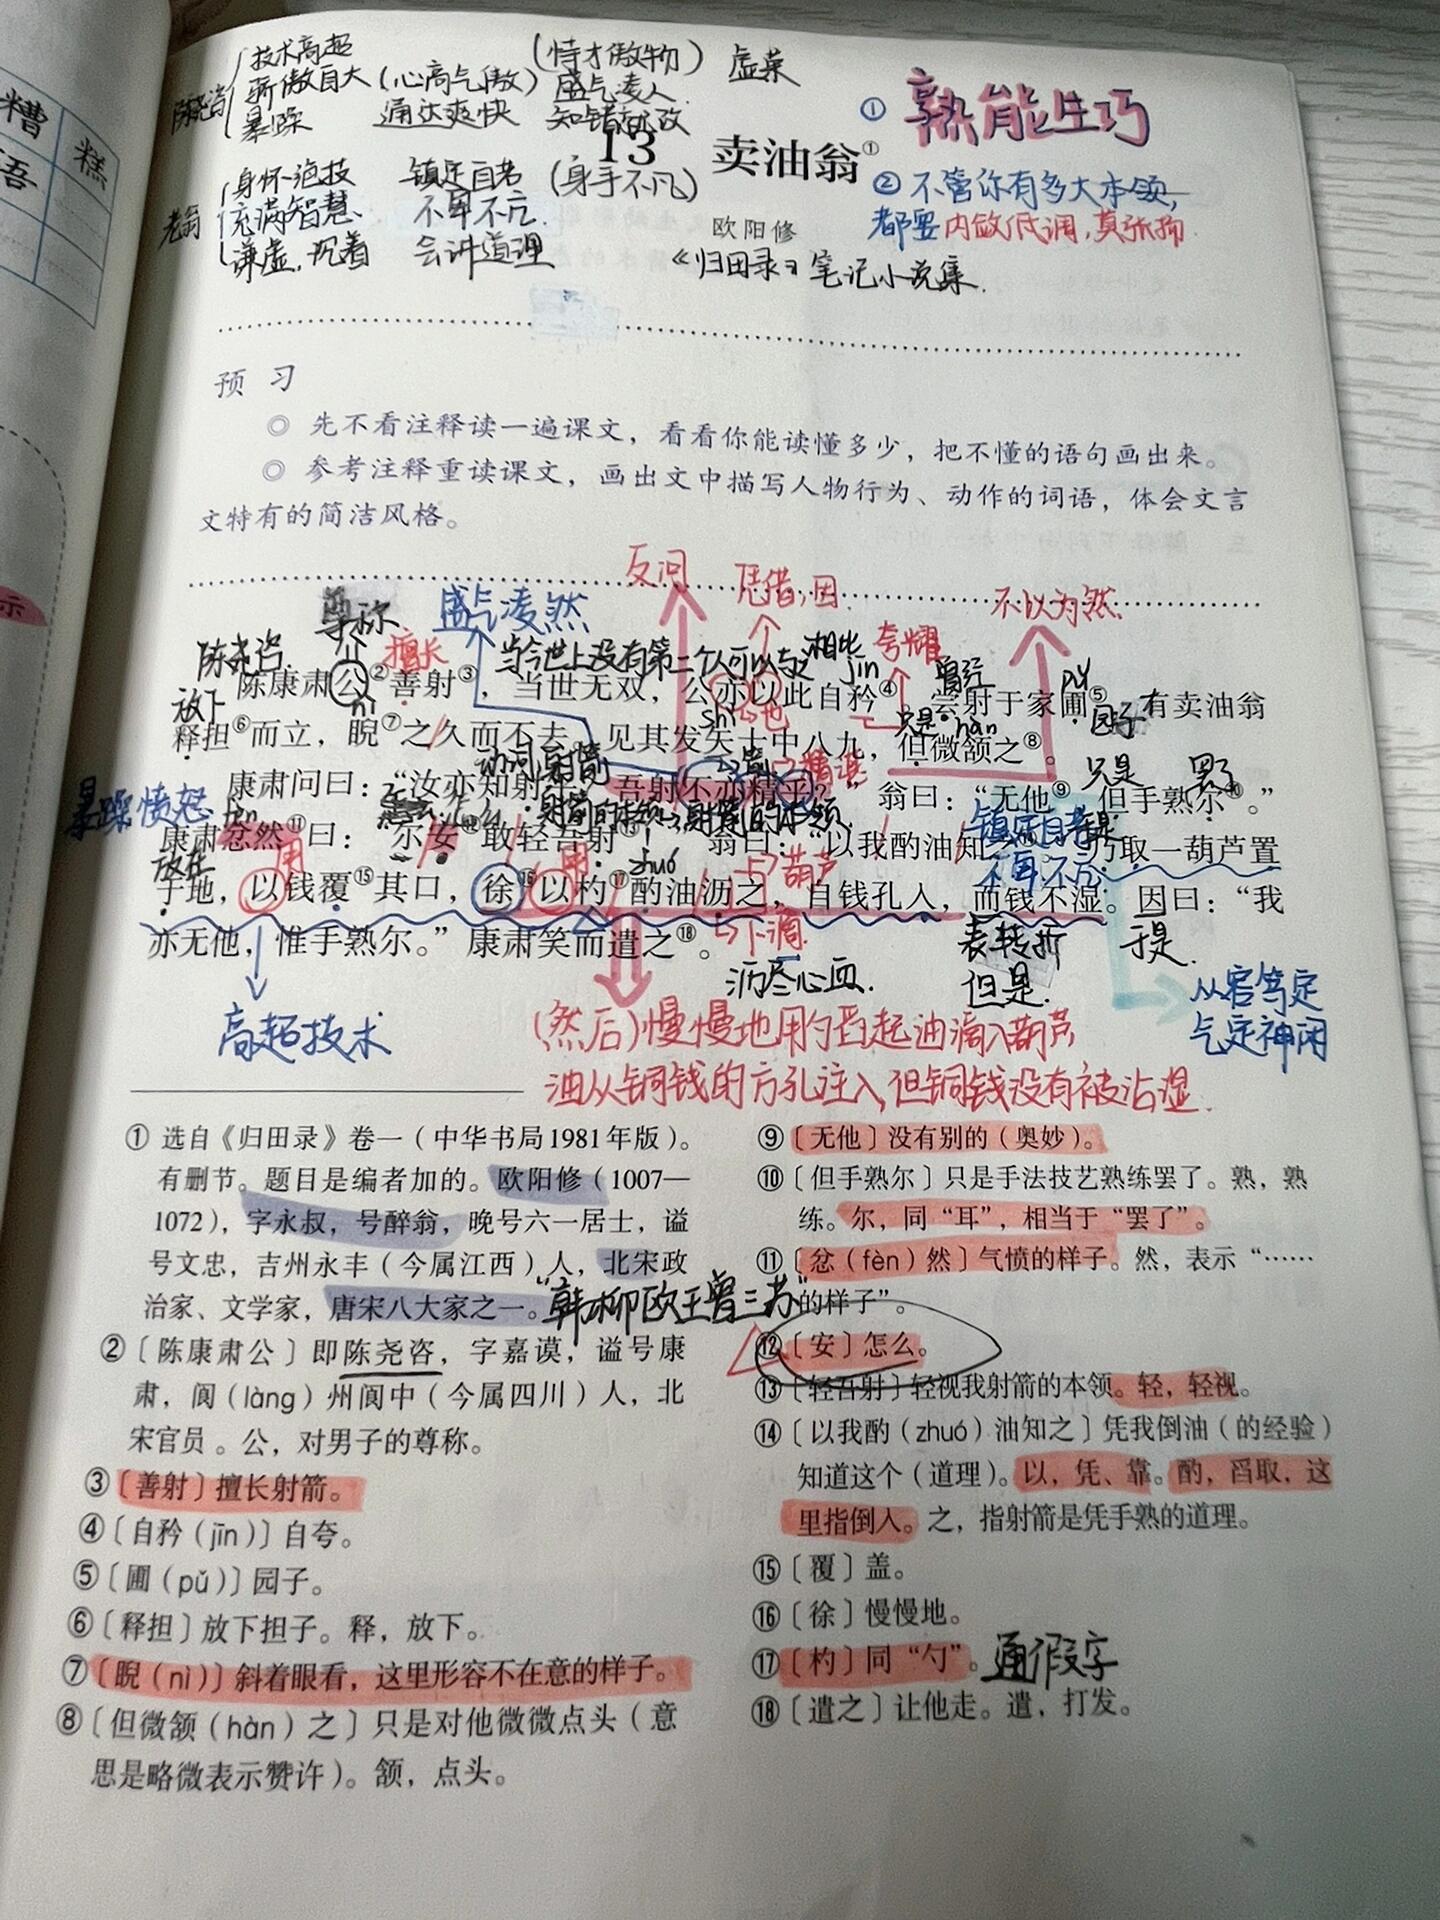 技术高超
(恃才傲物) 虚荣
陈尧咨 骄傲自大 (心高气傲) 盛气凌人
暴躁 通达爽快 知错就改
① 熟能生巧
13 卖油翁①
身怀绝技 镇定自若 (身手不凡)
② 不管你有多大本领,
老翁 充满智慧、 不卑不亢.
都要内敛低调,莫张扬.
欧阳修
谦虚,沉着 会讲道理
《归田录》笔记小说集.
糟
糕
语
示
预 习
◎ 先不看注释读一遍课文，看看你能读懂多少，把不懂的语句画出来。
◎ 参考注释重读课文，画出文中描写人物行为、动作的词语，体会文言
文特有的简洁风格。
反问
凭借,因
不以为然
尊称 盛气凌然
陈尧咨 擅长 当今世上没有第二个人可以与之相比 jīn 夸耀 曾经 pǔ
陈康肃公②善射③，当世无双，公亦以此自矜④。尝射于家圃⑤，有卖油翁
放下 nì shǐ 也 只是 hàn 园子
释担⑥而立，睨⑦之久而不去。见其发矢十中八九，但微颔之⑧。
动词,射箭 精湛 只是 罢了
康肃问曰：“汝亦知射乎？吾射不亦精乎？”翁曰：“无他⑨，但手熟尔⑩。”
暴躁愤怒 fèn 射箭的本领 射箭的本领. 镇定自若
康肃忿然⑪曰：“尔安⑫敢轻吾射⑬！”翁曰：“以我酌油知之⑭。”乃取一葫芦置
放在 用 用 zhuó 葫芦 不卑不亢
于地，以钱覆⑮其口，徐⑯以杓⑰酌油沥之，自钱孔入，而钱不湿。因曰：“我
亦无他，惟手熟尔。”康肃笑而遣之⑱。
下滴 表转折 于是.
沥尽心血. 但是.
从容笃定
气定神闲
高超技术
(然后)慢慢地用勺舀起油滴入葫芦
油从铜钱的方孔注入,但铜钱没有被沾湿.
① 选自《归田录》卷一（中华书局1981年版）。
有删节。题目是编者加的。欧阳修（1007—
1072），字永叔，号醉翁，晚号六一居士，谥
号文忠，吉州永丰（今属江西）人，北宋政
治家、文学家，唐宋八大家之一。“韩柳欧王曾三苏”
②〔陈康肃公〕即陈尧咨，字嘉谟，谥号康
肃，阆（làng）州阆中（今属四川）人，北
宋官员。公，对男子的尊称。
③〔善射〕擅长射箭。
④〔自矜（jīn）〕自夸。
⑤〔圃（pǔ）〕园子。
⑥〔释担〕放下担子。释，放下。
⑦〔睨（nì）〕斜着眼看，这里形容不在意的样子。
⑧〔但微颔（hàn）之〕只是对他微微点头（意
思是略微表示赞许）。颔，点头。
⑨〔无他〕没有别的（奥妙）。
⑩〔但手熟尔〕只是手法技艺熟练罢了。熟，熟
练。尔，同“耳”，相当于“罢了”。
⑪〔忿（fèn）然〕气愤的样子。然，表示“……
的样子”。
⑫〔安〕怎么。
⑬〔轻吾射〕轻视我射箭的本领。轻，轻视。
⑭〔以我酌（zhuó）油知之〕凭我倒油（的经验）
知道这个（道理）。以，凭、靠。酌，舀取，这
里指倒入。之，指射箭是凭手熟的道理。
⑮〔覆〕盖。
⑯〔徐〕慢慢地。
⑰〔杓〕同“勺”。通假字
⑱〔遣之〕让他走。遣，打发。